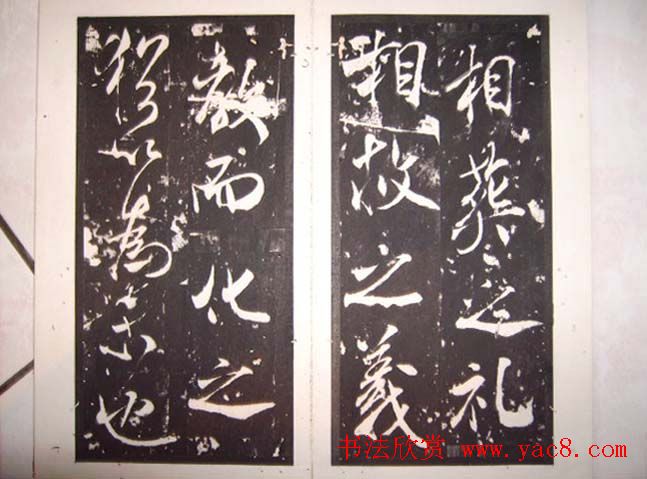 相葬之礼
相救之義
教而化之
猶以為也
书法欣赏 www.yac8.com